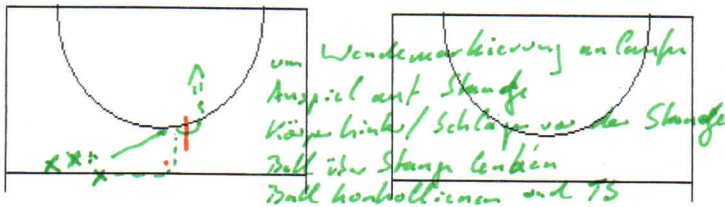 um Wendemarkierung anlaufen
Anspiel auf Stange
Körper hinter / Schläger vor der Stange
Ball über Stange lenken
Ball kontrollieren und TS